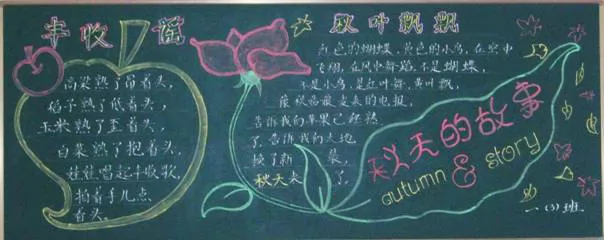 丰收谣
高粱熟了昂着头，
稻子熟了低着头，
玉米熟了歪着头，
白菜熟了抱着头，
娃娃唱起丰收歌，
拍着手儿点
着头。
秋叶飘飘
红色的蝴蝶，黄色的小鸟，在空中
飞翔，在风中舞蹈，不是蝴蝶，
不是小鸟，是红叶舞，黄叶飘，
像秋姑娘发来的电报，
告诉我们苹果已经熟
了，告诉我们大地
换了新装，
秋天来了。
秋天的故事
autumn & story
一（3）班